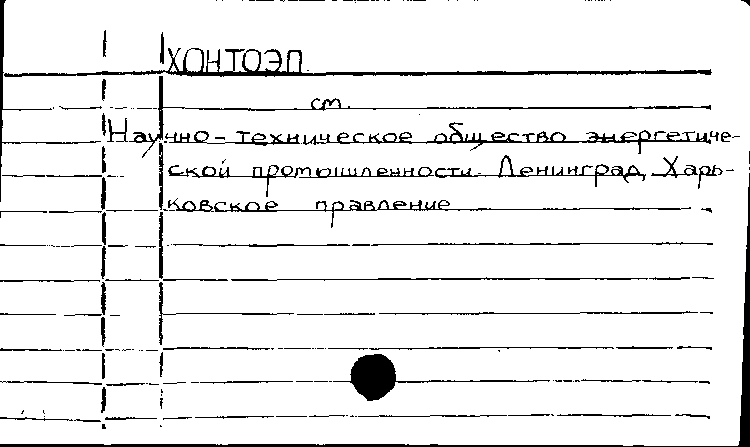 ХОНТОЭП
см.
Научно-техническое общество энергетиче-
ской промышленности. Ленинград, Харь-
ковское правление